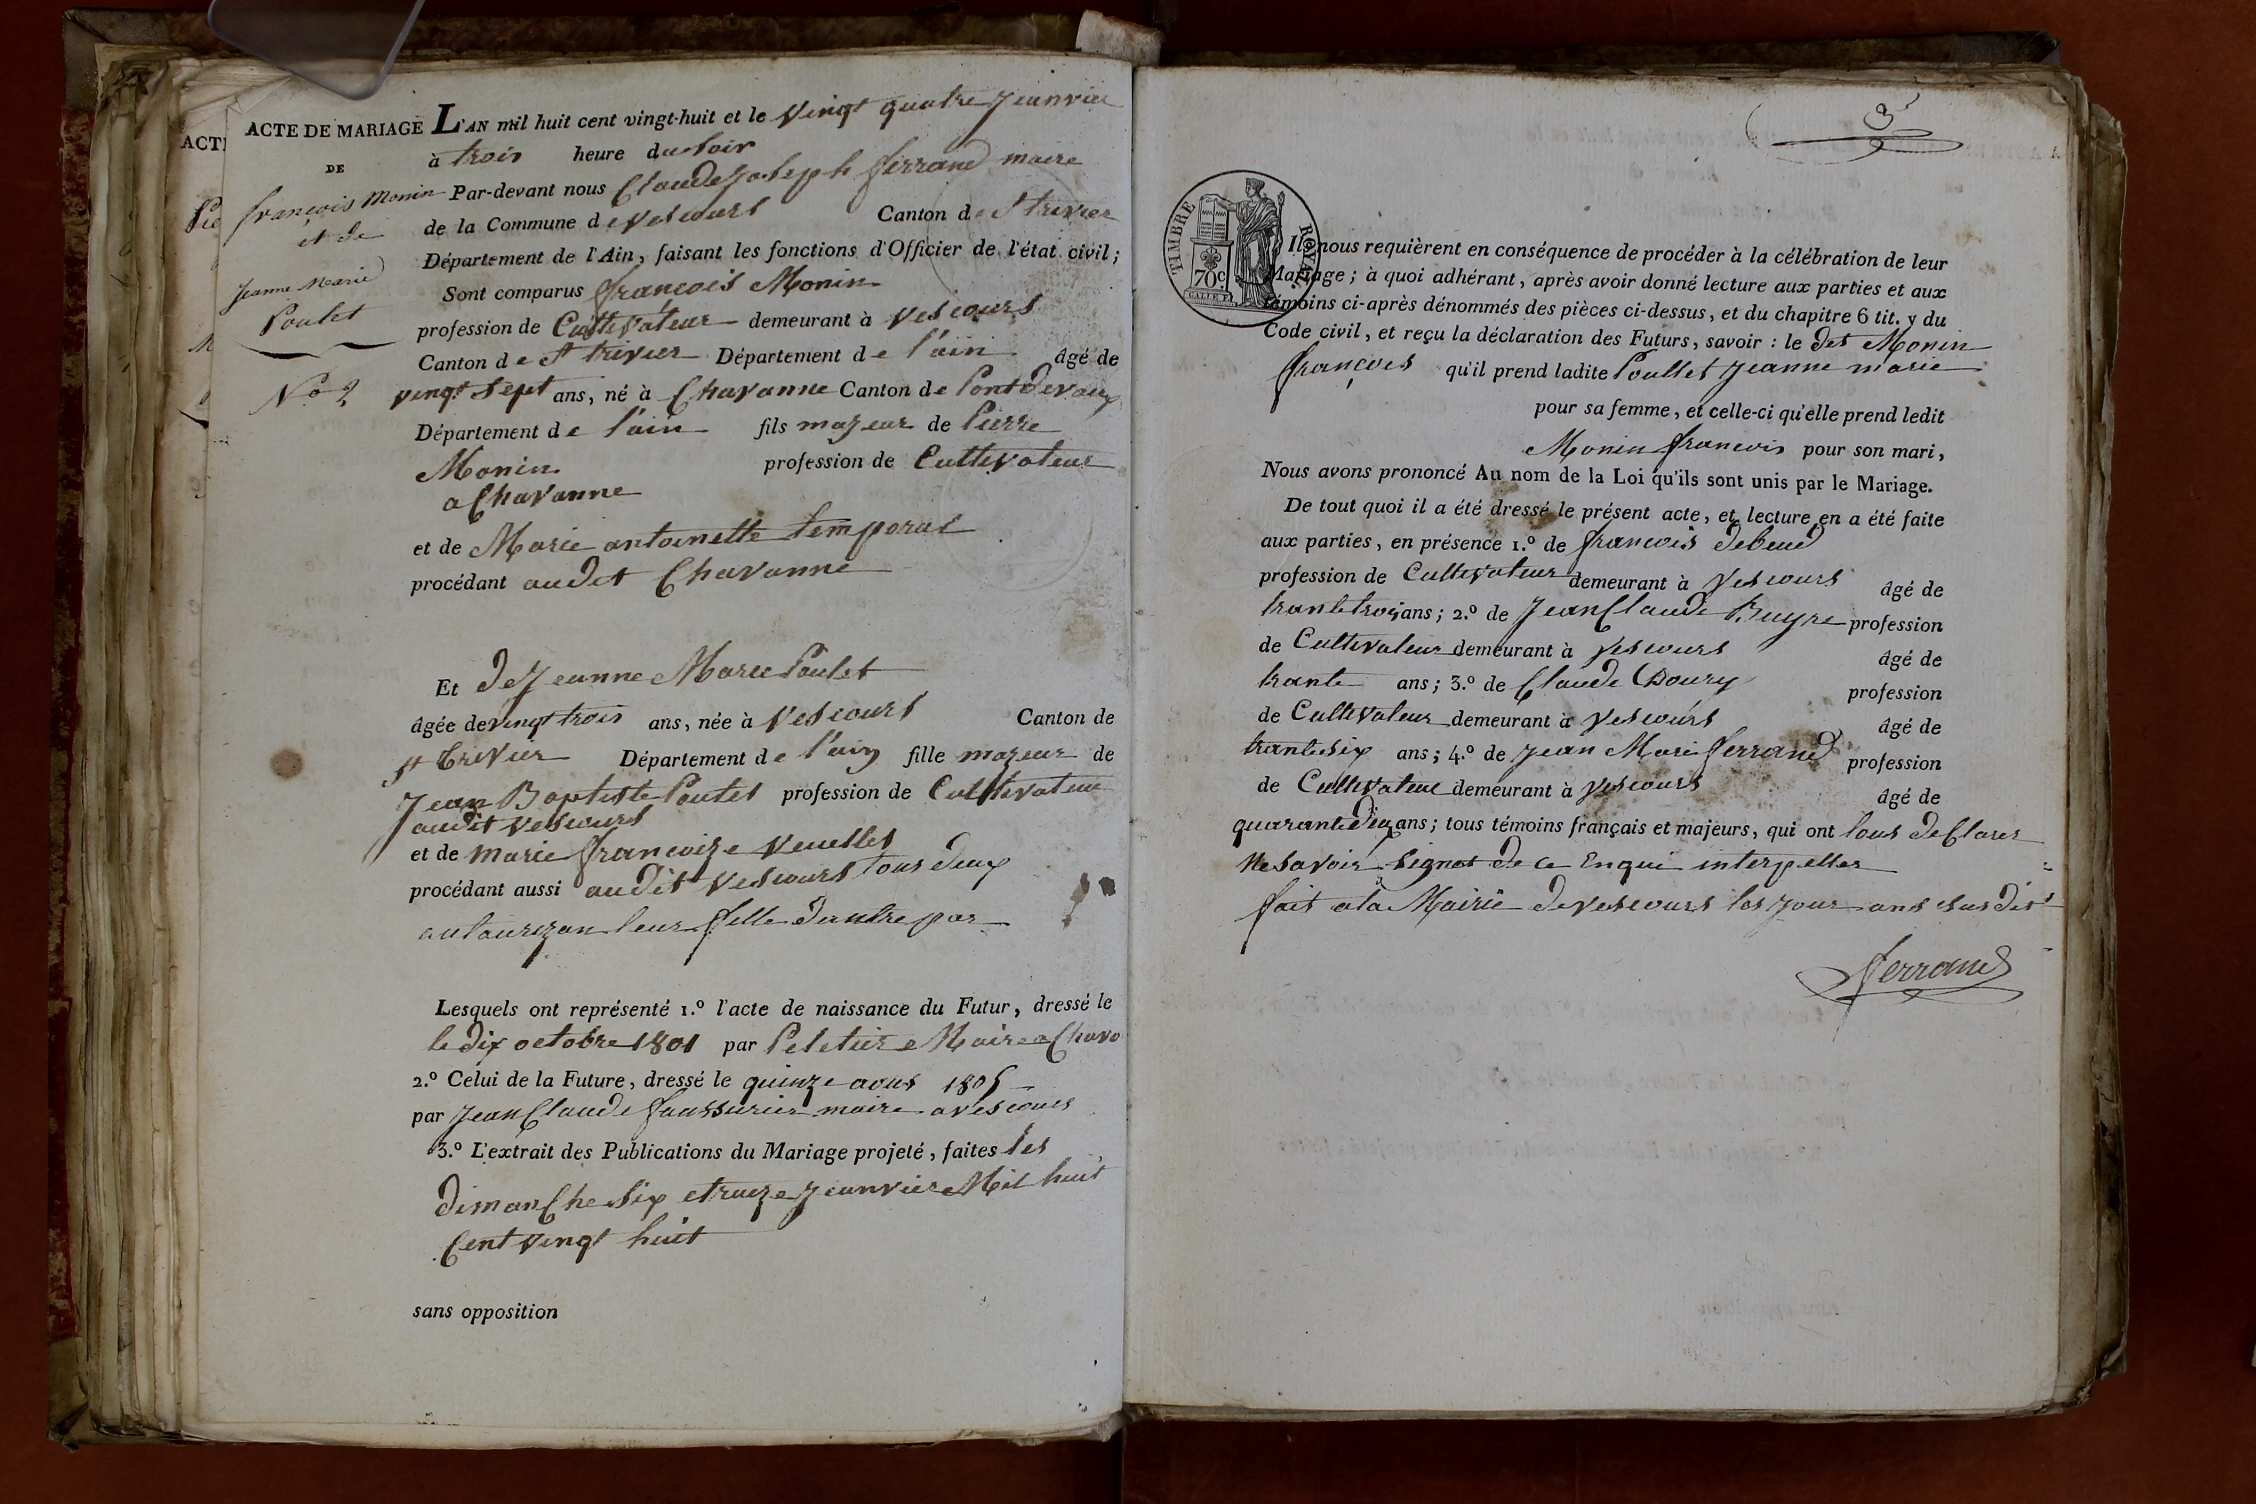 ACTE DE MARIAGE
DE
françois Monin
et de
Jeanne Marie
Poulet
No 2
ACT
Pie
L'AN mil huit cent vingt-huit et le vingt quatre Jeanvier
à trois heure du soir
Par-devant nous Claude Joseph ferrand maire
de la Commune de vescours Canton de St trivier
Département de l'Ain, faisant les fonctions d'Officier de l'état civil;
Sont comparus françois Monin
profession de Cultivateur demeurant à vescours
Canton de St trivier Département de l'ain âgé de
vingt sept ans, né à Chavanne Canton de Pontdevaux
Département de l'ain fils majeur de Pierre
Monin profession de Cultivateur
a Chavanne
et de Marie antoinette temporal
procédant audit Chavanne
Et de Jeanne Marie Poulet
âgée de vingt trois ans, née à vescours Canton de
St trivier Département de l'ain fille majeur de
Jean Baptiste Poulet profession de Cultivateur
audit vescours
et de marie françoise veuillet
procédant aussi audit vescours tous deux
autourizan leur fille dautre par
Lesquels ont représenté 1.º l'acte de naissance du Futur, dressé le
le dix octobre 1801 par Peletier Maire a Chava
2.º Celui de la Future, dressé le quinze aous 1805
par Jean Claude faussurier maire a vescours
3.º L'extrait des Publications du Mariage projeté, faites les
dimanche six et traize jeanvier Mil huit
Cent vingt huit
sans opposition
3
TIMBRE ROYAL
70c
Ils nous requièrent en conséquence de procéder à la célébration de leur
Mariage; à quoi adhérant, après avoir donné lecture aux parties et aux
témoins ci-après dénommés des pièces ci-dessus, et du chapitre 6 tit. y du
Code civil, et reçu la déclaration des Futurs, savoir : le det Monin
françois qu'il prend ladite Poullet Jeanne marie
pour sa femme, et celle-ci qu'elle prend ledit
Monin françois pour son mari,
Nous avons prononcé Au nom de la Loi qu'ils sont unis par le Mariage.
De tout quoi il a été dressé le présent acte, et lecture en a été faite
aux parties, en présence 1.º de françois debeud
profession de Cultivateur demeurant à vescours âgé de
trante trois ans; 2.º de Jean Claude Buyre profession
de Cultivateur demeurant à vescours âgé de
trante ans; 3.º de Claude Doury profession
de Cultivateur demeurant à vescours âgé de
trante six ans; 4.º de Jean Marie ferrand profession
de Cultivateur demeurant à vescours âgé de
quarante dix ans; tous témoins français et majeurs, qui ont tous declarer
ne savoir signet de ce Enqui interpeller
fait a la Mairie de vescours les jour ans susdit
ferrand